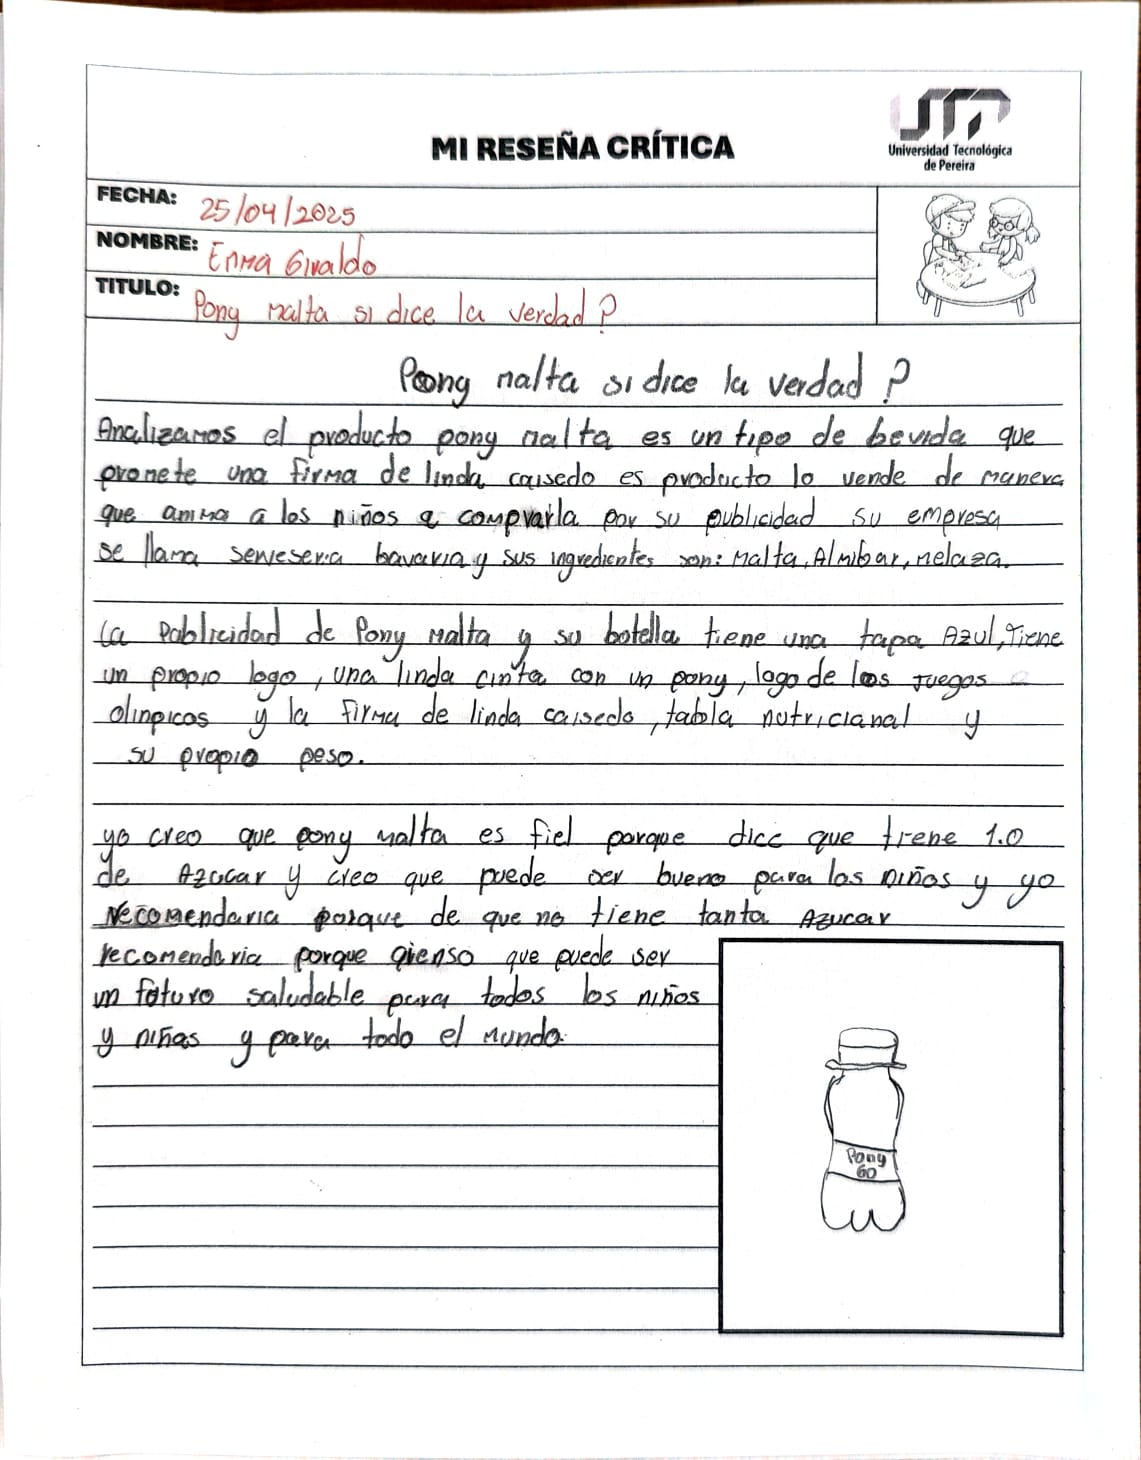 UTP
Universidad Tecnológica
de Pereira
MI RESEÑA CRÍTICA
FECHA: 25/04/2025
NOMBRE: Enma Giraldo
TITULO: Pony malta si dice la verdad?
Poong malta si dice la verdad?
Analizamos el producto pony malta es un tipo de bevida que
promete una firma de linda caisedo es producto lo vende de manera
que anima a los niños a comprarla por su publicidad su empresa
se llama serveseria bavaria y sus ingredientes son: Malta, Almibar, melaza.
La Publicidad de Pony Malta y su botella tiene una tapa Azul, Tiene
un propio logo, una linda cinta con un pony, logo de los Juegos
olinpicos y la firma de linda caisedo, tabla nutricianal y
su propio peso.
yo creo que pony malta es fiel porque dice que tiene 1.0
de Azucar y creo que puede ser bueno para los niños y yo
recomendaria porque de que no tiene tanta Azucar
recomendaria porque pienso que puede ser
un futuro saludable para todos los niños
y niñas y para todo el mundo.
Pony
60